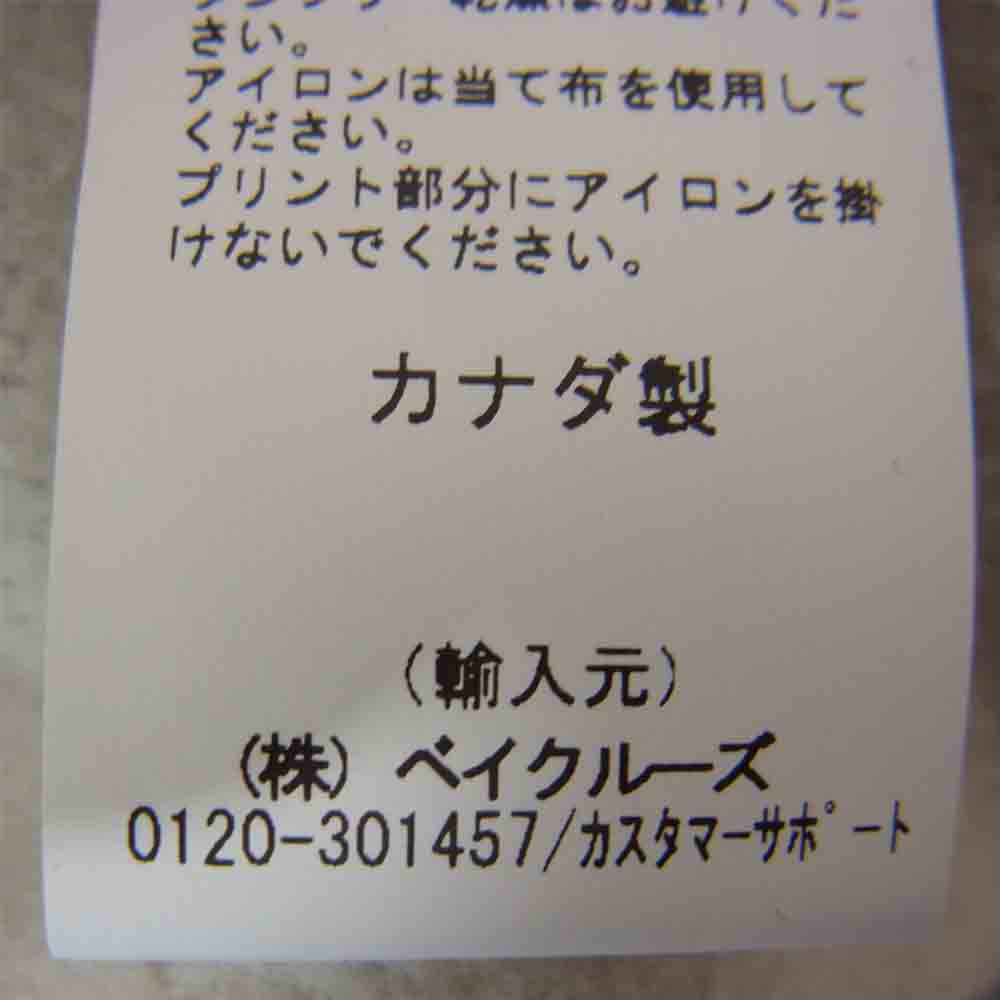 タンブラー乾燥はお避けくだ
さい。
アイロンは当て布を使用して
ください。
プリント部分にアイロンを掛
けないでください。
カナダ製
(輸入元)
(株) ベイクルーズ
0120-301457/カスタマーサポート